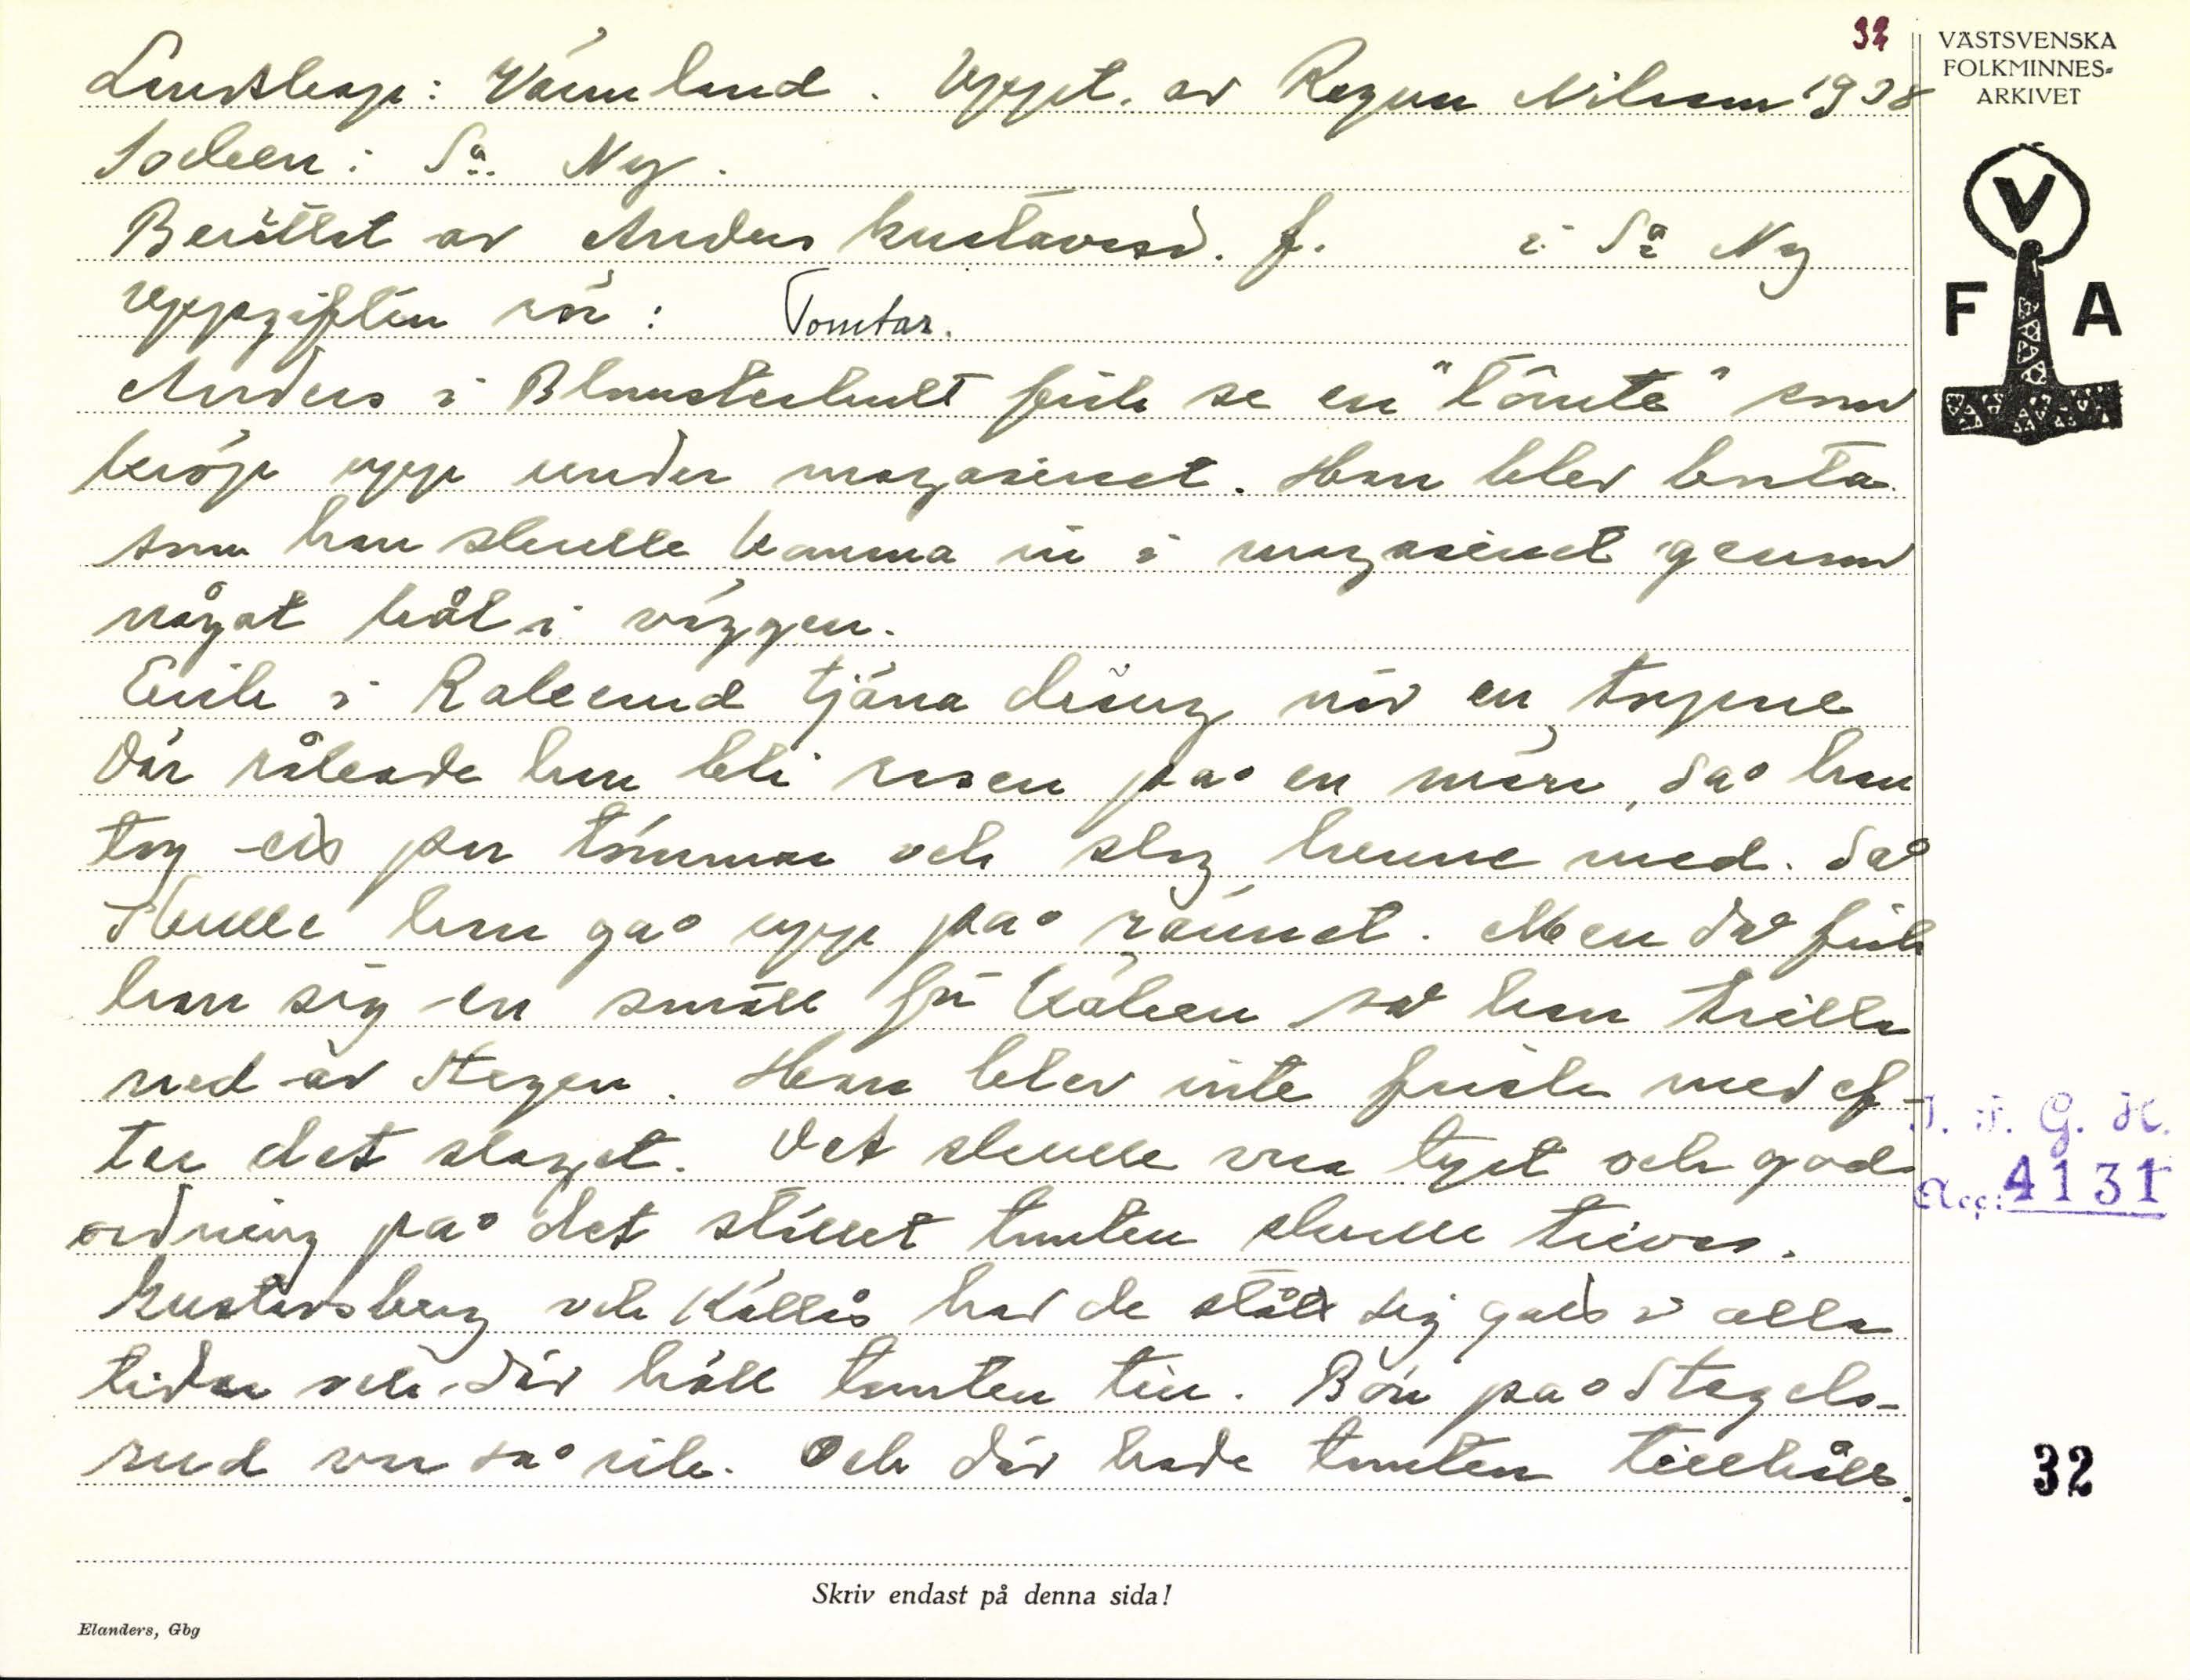 32
Landskap: Värmland. Uppt. av Ragnar Nilsson 1938
Socken: Sa. Ny.
Berättat av Anders Gustavsson. f. i Sa Ny
Uppgiften rör: Tomtar.
Anders i Blomsterhult fick se en "tômte" som
kröp upp under magasinet. Han blev borta
som han skulle komma in i magasinet genom
något hål i väggen.
Erik i tjäna dräng när en
Där råkade han bli rasen på en märr, så han
tog ett par tömmar och slog henne med. Så
skulle han gå upp på rännet. Men då fick
han sig en smäll för käken så han trilla
ned av stegen. Han blev inte frisk med ef-
ter det slaget. Det skulle vara tyst och god
ordning på det stället tomten skulle trivas.
Gustavsberg och Källås har de stått sig gott i alla
tider och där höll tomten till. Börn på Stegels-
rud var så rik. Och där hade tomten tillhåll.
Skriv endast på denna sida!
Elanders, Gbg
VÄSTSVENSKA
FOLKMINNES-
ARKIVET
V
F A
I. F. G. H.
Acc: 4131
32